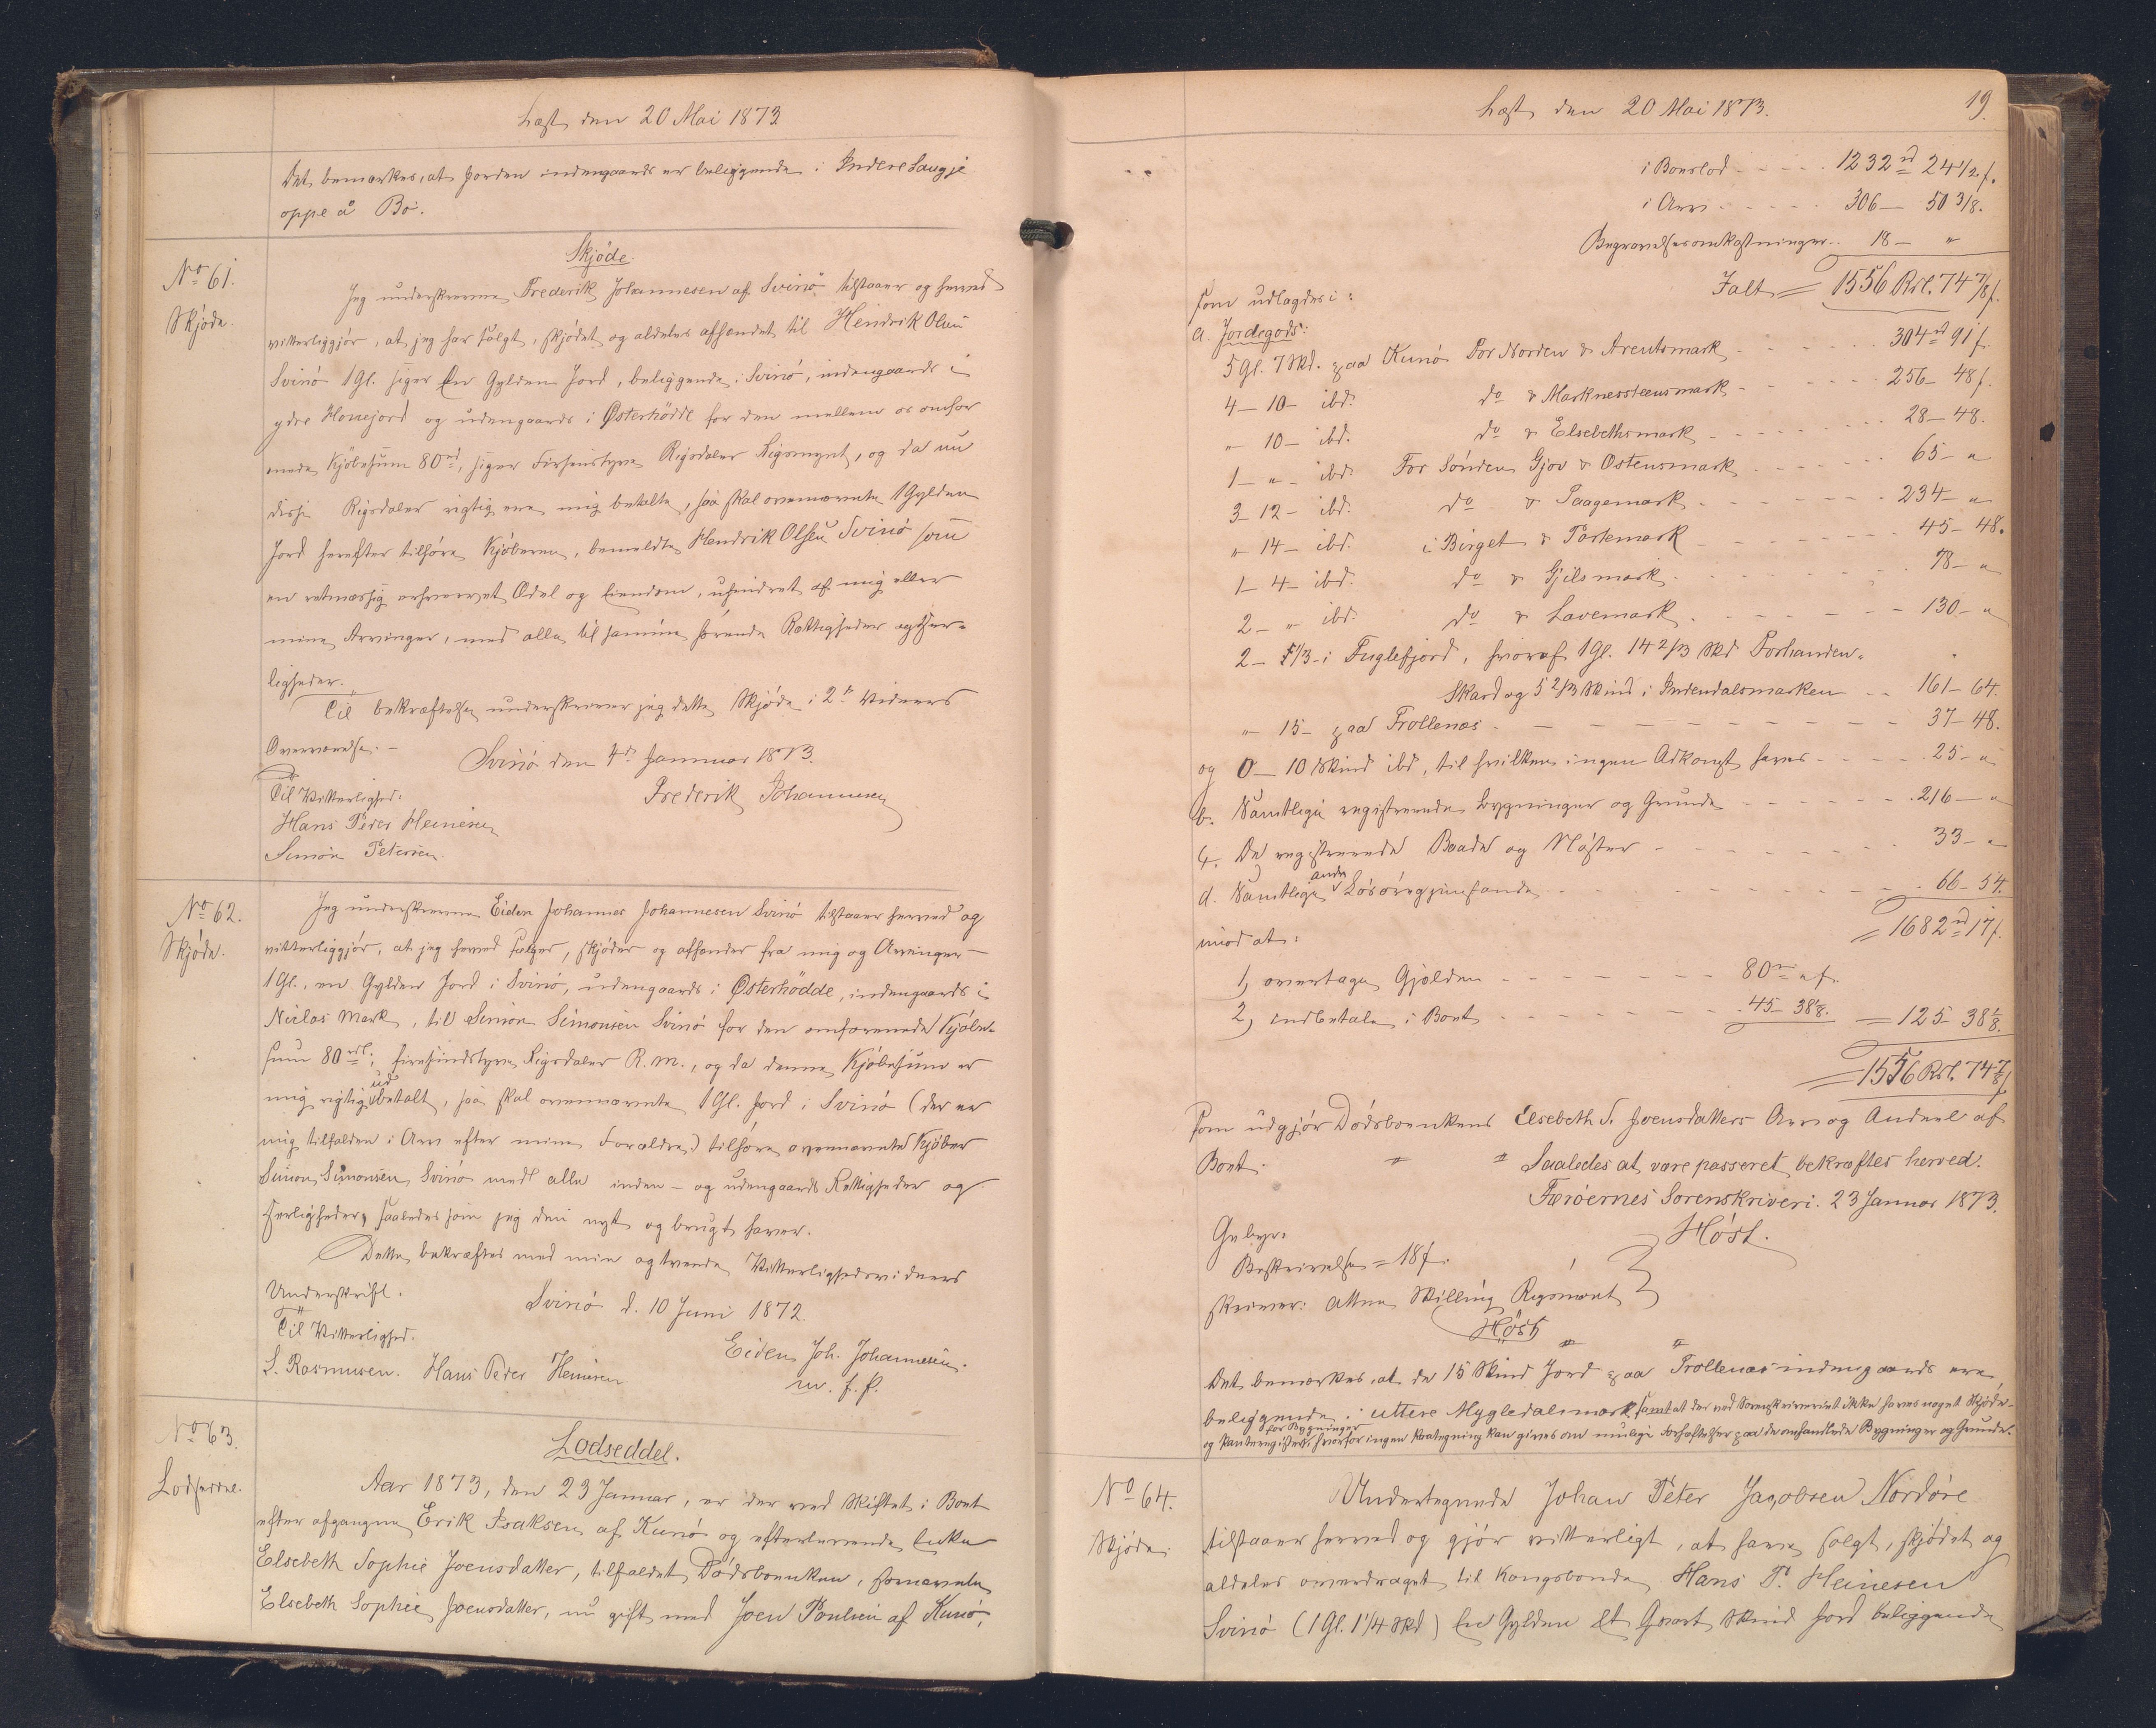 Læst den 20 Mai 1873
Det bemærkes, at Jorden indengaards er beliggende i Indere Laugje
oppe å Bø.
No 61.
Skjøde.
Skjøde.
Jeg underskrevne Frederik Johannesen af Svinö tilstaaer og herved
vitterliggjør, at jeg har solgt, skjødet og aldeles afhændet til Hendrik Olsen
Svinö 1 Gl. siger En Gylden Jord, beliggende i Svinö, indengaards i
ydre Honejord og udengaards i Østerhödde for den mellem os omfor
enede Kjöbesum 80 rd, siger Firsenstyve Rigsdaler Rigsmynt, og da nu
disse Rigsdaler rigtig ere mig betalte, saa skal ovennævnte 1 Gylden
Jord herefter tilhöre Kjöberen, bemeldte Hendrik Olsen Svinö som
en retmæssig erhvervet Odel og Eiendom, uhindret af mig eller
mine Arvinger, med alle til samme hörende Rettigheder og Her-
ligheder.
Til bekræftelse underskriver jeg dette Skjöde i 2de Vidners
Overværelse.-
Svinö den 4de Januar 1873.
Til Vitterlighed:
Frederik Johannesen
Hans Peder Heinesen
Simon Petersen.
No 62.
Skjøde.
Jeg underskrevne Eiden Johannes Johannesen Svinö tilstaaer herved og
vitterliggjör, at jeg herved sælger, skjöder og afhænder fra mig og Arvinger -
1 Gl., en Gylden Jord i Svinö, udengaards i Østerhödde, indengaards i
Niclas Mark, til Simon Simonsen Svinö for den omforenede Kjöbe-
sum 80 rdl., firesindstyve Rigsdaler R.M., og da denne Kjöbesum er
mig rigtig udbetalt, saa skal ovennævnte 1 Gl. Jord i Svinö (der er
mig tilfalden i Arv efter mine Forældre) tilhöre ovennævnte Kjöber
Simon Simonsen Svinö med alle inden- og udengaards Rettigheder og
Herligheder, saaledes som jeg den nyt og brugt haver.
Dette bekræftes med min og tvende Vitterlighedsvidners
Underskrift.
Svinö d. 10 Juni 1872.
Til Vitterlighed.
Eiden Joh. Johannesen.
S. Rasmusen. Hans Peder Heinesen
m. f. P.
No 63.
Lodseddel.
Lodseddel.
Aar 1873, den 23 Januar, er der ved Skiftet i Boet
efter afgangne Erik Isaksen af Kunö og efterlevende Enke
Elsebeth Sophie Joensdatter, tilfaldet Dödsboenken, fornævnte
Elsebeth Sophie Joensdatter, nu gift med Joen Poulsen af Kunö,
Læst den 20 Mai 1873.
19.
i Boeslod - - - - 1232 rd 24 1/2 f.
i Arv - - - - - 306 - 50 3/8.
Begravelsesomkostninger.. 18 - "
Ialt = 1556 Rdl. 74 7/8 f.
som udlagdes i:
a. Jordegods:
5 Gl. 7 Skd. paa Kunö For Norden & Arentsmark - - - - 304 rd 91 f.
4 - 10 - ibd. do & Marknessteensmark - - - - - 256 - 48 f.
" - 10 - ibd. do & Elsebethsmark - - - - - - - 28 - 48.
1 - " - ibd. For Sönden Gjov & Ostensmark - - - - 65 - "
3 - 12 - ibd. do & Paagemark - - - - - - 234 - "
" - 14 - ibd. i Birget & Partemark - - - - - - - 45 - 48.
1 - 4 - ibd. do & Gjilsmark - - - - - - - 78 - "
2 - " - ibd. do & Lavemark - - - - - - - 130 - "
2 - 4 1/3 - i Fuglefjord, hvoraf 1 Gl. 14 2/3 Skd Forhanden-
Skard og 5 2/3 Skind i Indendalsmarken - - 161 - 64.
" - 15 - paa Trollenæs - - - - - - - - - - 37 - 48.
og 0 - 10 Skind ibd, til hvilken ingen Adkomst haves - - - - 25 - "
b. Samtlige registrerede Bygninger og Grunde - - - - - 216 - "
c. De registrerede Baade og Nöster - - - - - - - - 33 - "
d. Samtlige andre Lösöregjenstande - - - - - - - 66 - 54.
= 1682 rd 17 f.
mod at:
1, overtage Gjælden - - - - - - - 80 rd " f.
2, indbetale i Boet - - - - - - - - 45 - 38 1/8. = 125 - 38 1/8.
= 1556 Rdl. 74 7/8 f
som udgjör Dödsboenkens Elsebeth S. Joensdatters Arv og Andeel af
Boet.
Saaledes at være passeret bekræftes herved.
Færöernes Sorenskriveri. 23 Januar 1873.
Höst.
Gebyr:
Beskrivelse = 18 f.
skriver: Atten Skilling Rigsmønt
Höst
Det bemærkes, at de 15 Skind Jord paa Trollenæs indengaards ere
beliggende i uttere Mygledalsmark, samt at der ved Sorenskriveriet ikke haves noget Skjøde-
og Panteregister for Bygninger, hvorfor ingen Paategning kan gives om mulige Behæftelser paa de omhandlede Bygninger og Grunde.
No 64.
Skjøde.
Undertegnede Johan Peter Jacobsen Nordöre
tilstaaer herved og gjör vitterligt, at have solgt, skjødet og
aldeles overdraget til Kongsbonde Hans P. Heinesen
Svinö (1 Gl. 1 1/4 Skd) En Gylden Et Qvart Skind Jord beliggende